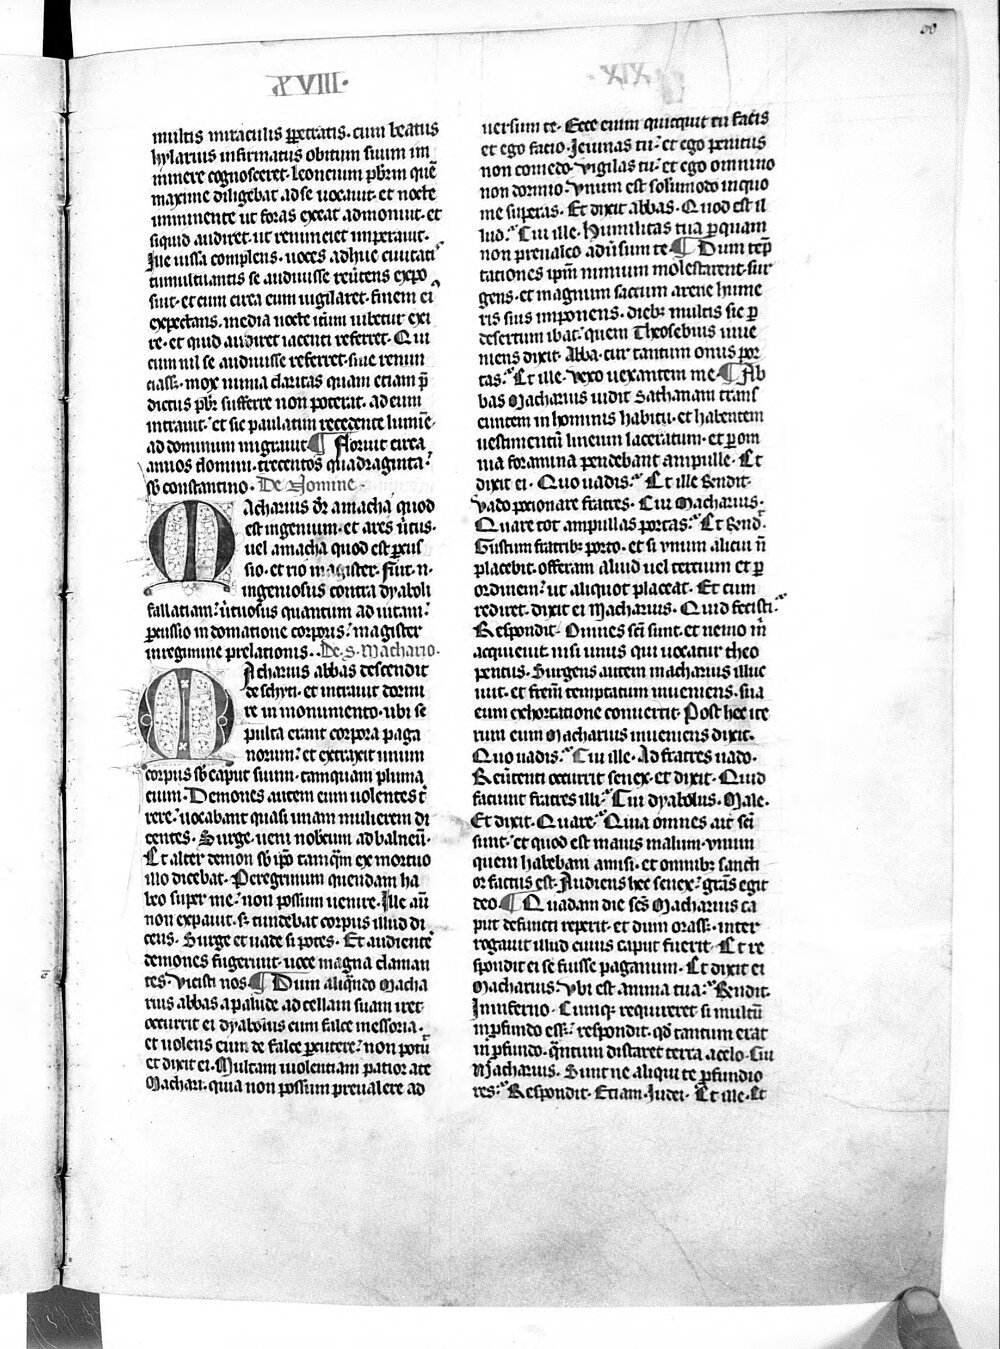 ·XVIII·
multis miraculis ꝑpetratis. cum beatus
hylarius infirmatus obitum suum im
minere cognosceret. leoncium pb̄rm quē
maxime diligebat ad se uocauit. et nocte
imminente ut foras exeat admonuit. et
siquid audiret. ut renunciet imperauit.
Ille iussa complens. uoces adhuc ciuitatis
tumultuantis se audiuisse reūtens expo
suit. et cum circa eum uigilaret. finem ei
expectans. media nocte itūm iubetur exi
re. et quid audiret iacenti referret. Qui
cum nil se audiuisse referret. siue renun
ciasset. mox nimia claritas quam etiam p̄
dictus pb̄r sufferre non poterat. ad eum
intrauit. et sic paulatim recedente lumine
ad dominum migrauit ¶ Floruit circa
annos domini. trecentos quadraginta.
sb̄ constantino. De Nomine
Macharius dr̄ a macha quod
est ingenium. et ares ūtus.
uel a macha quod est ꝑcus
sio. et rio magister. Fuit. n.
ingeniosus contra dyaboli
fallatiam. ūtuosus quantum ad uitam.
ꝑcussio in domatione corporis. magister
in regimine prelationis. De S. Machario.
Macharius abbas descendit
de schyti. et intrauit dormi
re in monumento. ubi se
pulta erant corpora paga
norum. et extraxit unum
corpus sb̄ caput suum. tamquam pluma
cium. Demones autem eum uolentes t̄
rere. uocabant quasi unam mulierem di
centes. Surge. ueni nobcum ad balneū.
Et alter demon sb̄ ip̄o tamq̄m ex mortuo
illo dicebat. Peregrinum quendam ha
beo super me. non possum uenire. Ille aūt
non expauit. s; tundebat corpus illud di
cens. Surge et uade si potes. Et audientes
demones fugerunt. uoce magna claman
tes. Vicisti nos ¶ Dum aliqn̄do Macha
rius abbas a palude ad cellam suam iret.
occurrit ei dyabolus cum falce messoria.
et uolens eum de falce ꝑcutere. non potuit
et dixit ei. Multam uiolentiam patior a te
Machari. quia non possum preualere ad
·XIX·
uersum te. Ecce enim quicquit tu facis
et ego facio. Ieiunas tu. et ego penitus
non comedo. Vigilas tu. et ego omnino
non dormio. Vnum est solummodo in quo
me superas. Et dixit abbas. Quod est il
lud. Cui ille. Humilitas tua ꝑ quam
non preualeo adūsum te ¶ Dum temp
tationes ipm̄ nimium molestarent. sur
gens. et magnum saccum arene hume
ris suis imponens. diebꝫ multis sic ꝑ
desertum ibat. quem Theosebius inue
niens dixit. Abba. cur tantum onus por
tas. Et ille. Vexo uexantem me ¶ Ab
bas Macharius uidit Sathanam trans
euntem in hominis habitu. et habentem
uestimentū lineum laceratum. et ꝑ om
nia foramina pendebant ampulle. Et
dixit ei. Quo uadis. Et ille Rendit.
Vado pocionare fratres. Cui Macharius.
Quare tot ampullas portas. Et Rend̄.
Gustum fratribꝫ porto. et si unum alicui n̄
placebit. offeram aliud uel tercium et ꝑ
ordinem. ut aliquot placeat. Et cum
rediret. dixit ei Macharius. Quid fecisti.
Respondit. Omnes sc̄i sunt. et nemo m̄
acquieuit nisi unus qui uocatur theo
pentus. Surgens autem macharius illuc
iuit. et frēm temptatum inueniens. sua
eum exhortatione conuertit. Post hec ite
rum eum Macharius inueniens dixit.
Quo uadis. Cui ille. Ad fratres uado.
Reūtenti occurrit senex. et dixit. Quid
faciunt fratres illi. Cui dyabolus. Male.
Et dixit. Quare. Quia omnes ait sc̄i
sunt. et quod est maius malum. unum
quem habebam amisi. et omnibꝫ sancti
or factus est. Audiens hec senex. grās egit
deo ¶ Quadam die sc̄s Macharius ca
put defuncti reperit. et dum orass;. inter
rogauit illud cuius caput fuerit. Et re
spondit ei se fuisse paganum. Et dixit ei
Macharius. Vbi est anima tua. Rendit.
In inferno. Cumqꝫ requireret si multū
in ꝓfundo ess;. respondit. qd̄ tantum erat
in ꝓfundo. qn̄tum distaret terra a celo. Cui
Macharius. Sunt ne aliqui te ꝓfundio
res. Respondit. Etiam. Iudei. Et ille. Et